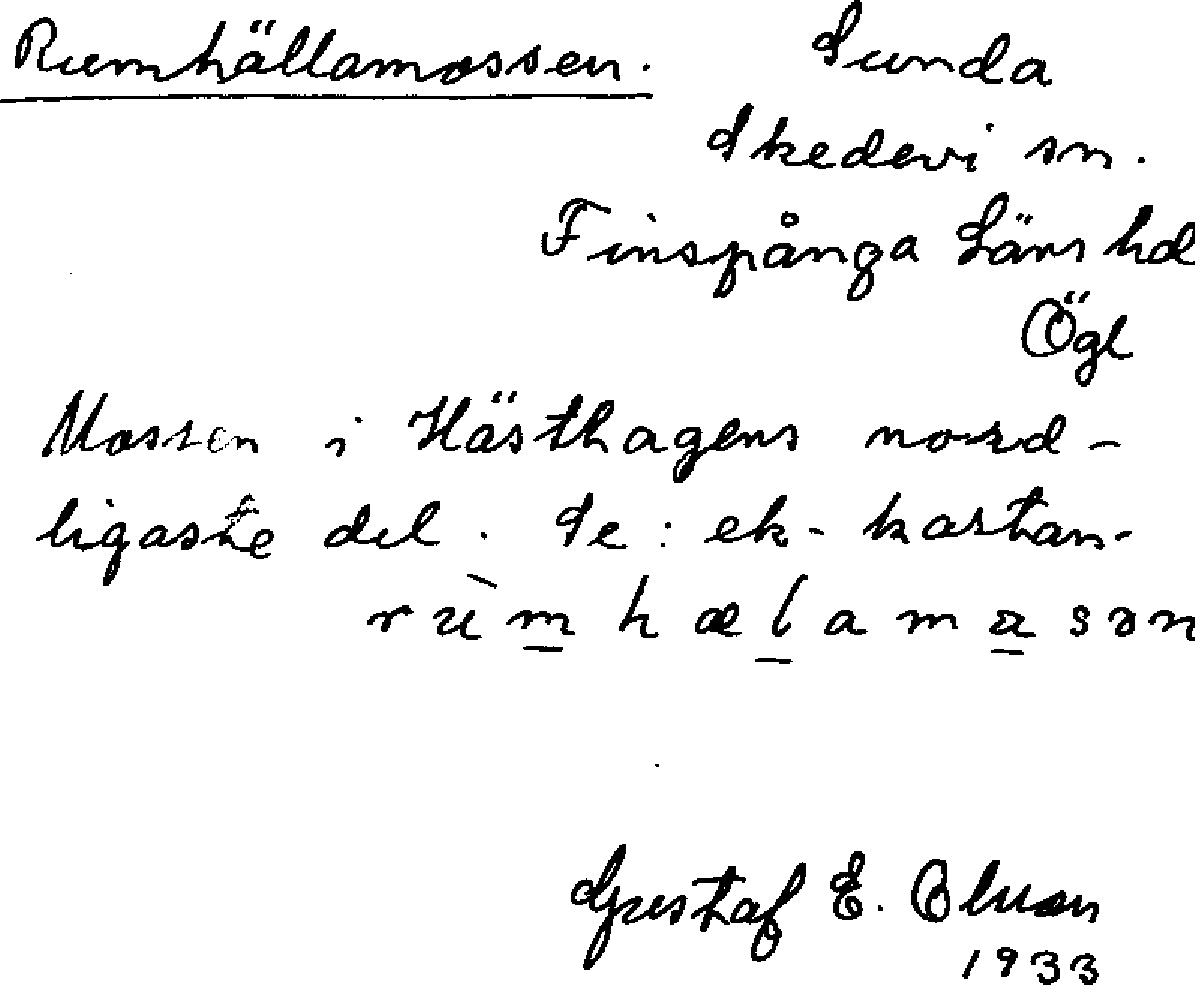 Rumhällamossen. Sunda
Skedevi sn.
Finspånga Läns hd
Ögl
Mossen i Hästhagens nord-
ligaste del. Se: ek-kartan-
rùm̲hæl̲ama̲sən
Gustaf E. Olsson
1933